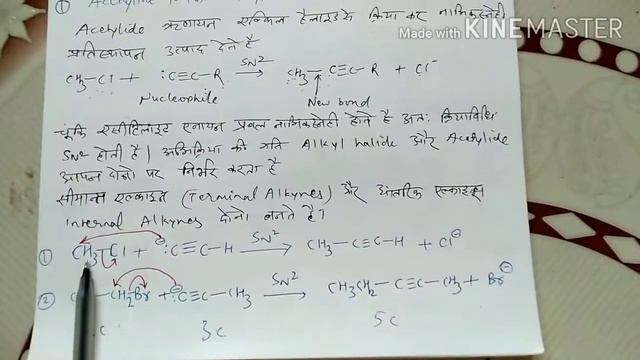 Acetylide ऋणायन एल्किल हैलाइड से क्रिया कर नाभिकस्नेही
प्रतिस्थापन उत्पाद देते है
CH3-Cl + :C≡C-R SN2→ CH3-C≡C-R + Cl⁻
Nucleophile New bond
चूंकि एसीटिलाइड एनायन प्रबल नाभिकस्नेही होते है अतः क्रियाविधि
SN2 होती है। अभिक्रिया की गति Alkyl halide और Acetylide
आयन दोनो पर निर्भर करता है
सीमान्त एल्काइन (Terminal Alkynes) और आंतरिक एल्काइन
Internal Alkynes दोनो बनते है।
① CH3-Cl + ⊖:C≡C-H SN2→ CH3-C≡C-H + Cl⊖
② CH2Br + ⊖:C≡C-CH3 SN2→ CH3CH2-C≡C-CH3 + Br⊖
C 3C 5C
Made with KINEMASTER